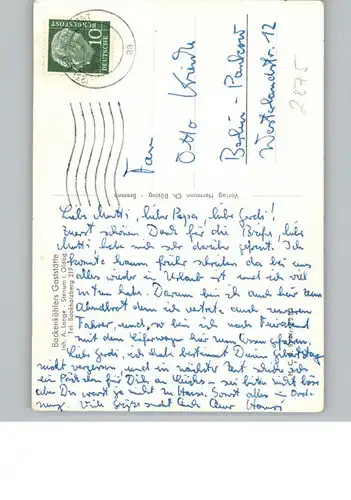 DEUTSCHE
BUNDESPOST
10
Fam.
Otto Kriedt
Berlin - Pankow
Westerlandstr. 12
2875
Verlag Hermann Ch. Büsing - Bremen
Backenköhlers Gaststätte
Inh. A. Lange - Stenum i. Oldbg.
Tel. Bookholzberg 219
Liebe Mutti, lieber Papa, liebe Gerdi!
zuerst schönen Dank für die Briefe, liebe
Mutti habe mich sehr darüber gefreut. Ich
konnte kaum früher schreiben da bei uns
alles wieder in Urlaub ist und ich viel
zu tun habe. Darum bin ich auch hier im
denn ich vertrete auch unseren
Fahrer, und so bin ich nach Feierabend
mit dem hier zum Essen gefahren.
Liebe Gerdi, ich habe bestimmt Deinen Geburtstag
nicht vergessen und in nächster Zeit schicke ich
ein Päckchen für Dich an sei bitte nicht böse
aber Du warst ja nicht zu Hause. Sonst alles in Ord-
nung. Viele Grüße sendet Euch Euer